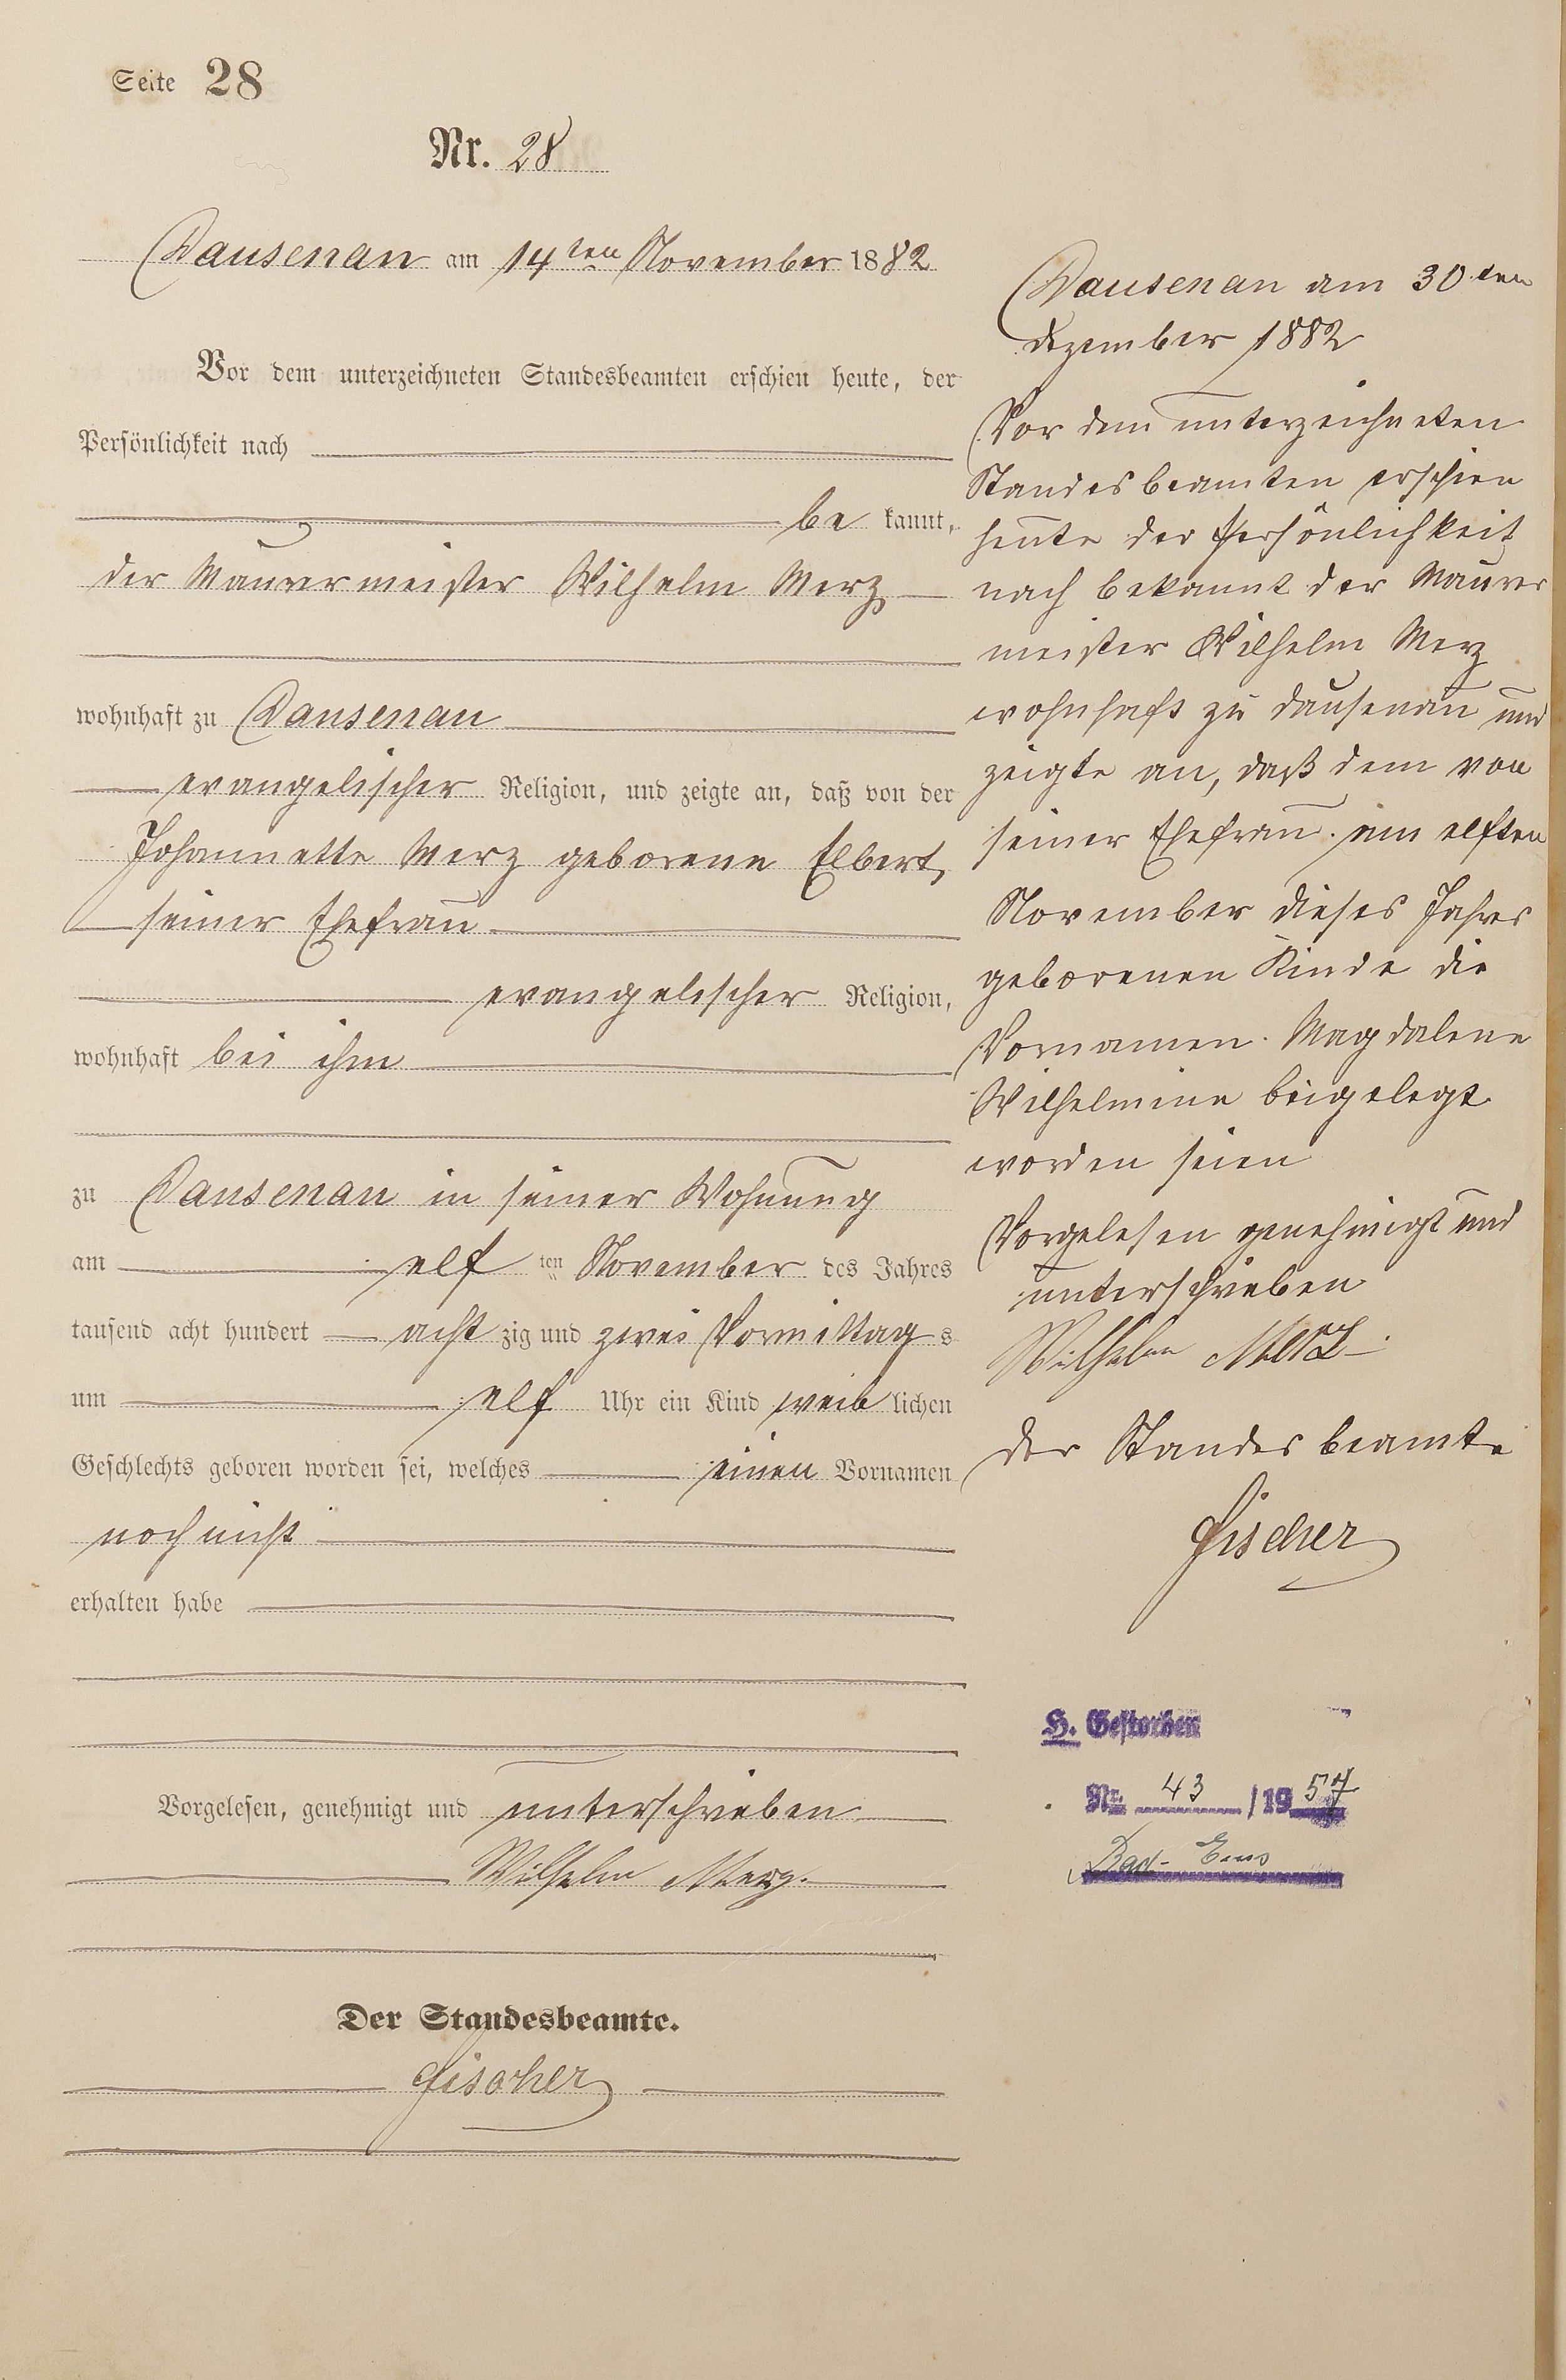 Seite 28
Nr. 28
Dausenau am 14ten November 1882
Vor dem unterzeichneten Standesbeamten erschien heute, der
Persönlichkeit nach
be kannt,
der Maurermeister Wilhelm Merz
wohnhaft zu Dausenau
evangelischer Religion, und zeigte an, daß von der
Johannette Merz geborene Elbert,
seiner Ehefrau
evangelischer Religion,
wohnhaft bei ihm
zu Dausenau in seiner Wohnung
am elf ten November des Jahres
tausend acht hundert acht zig und zwei Vormittag s
um elf Uhr ein Kind weib lichen
Geschlechts geboren worden sei, welches einen Vornamen
noch nicht
erhalten habe
Vorgelesen, genehmigt und unterschrieben
Wilhelm Merz.
Der Standesbeamte.
Fischer
Dausenau am 30ten
Dezember 1882
Vor dem unterzeichneten
Standesbeamten erschien
heute der Persönlichkeit
nach bekannt der Maurer
meister Wilhelm Merz
wohnhaft zu Dausenau und
zeigte an, daß dem von
seiner Ehefrau am elften
November dieses Jahres
geborenen Kinde die
Vornamen Magdalene
Wilhelmine beigelegt
worden seien
Vorgelesen genehmigt und
unterschrieben
Wilhelm Merz
Der Standesbeamte
Fischer
H. Gestorben
Nr. 43 /1957
Bad-Ems